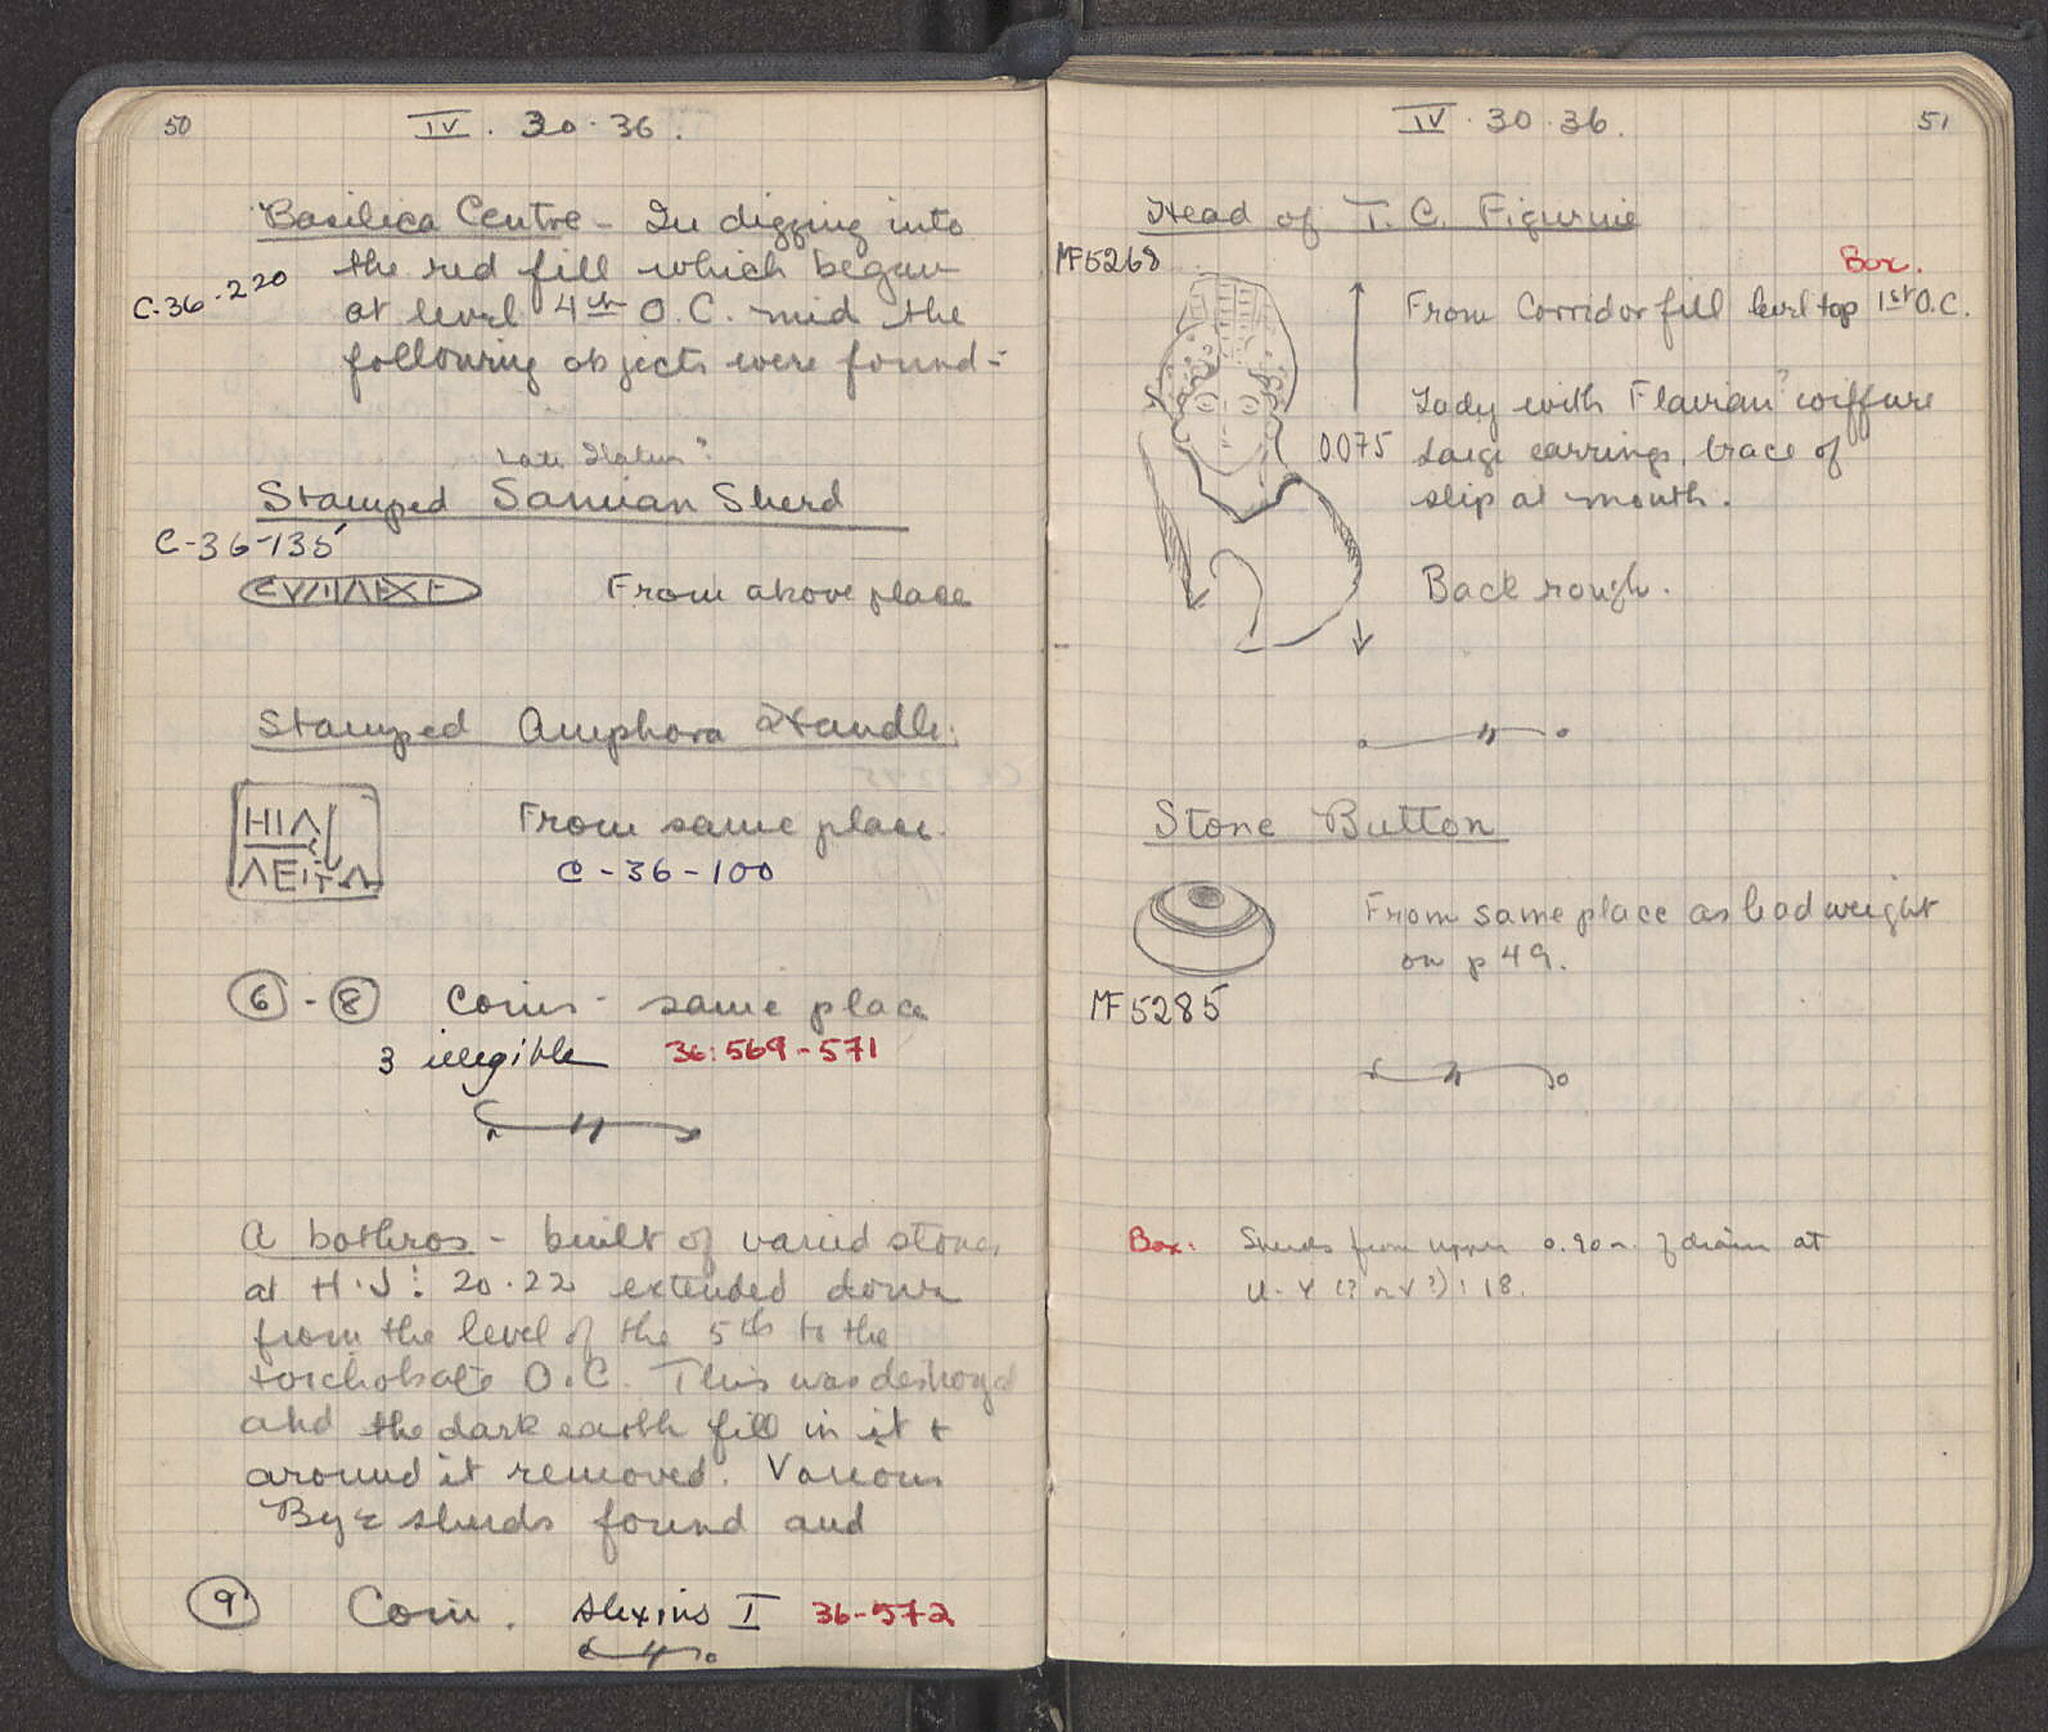 50
IV . 30 . 36 .
Basilica Centre - In digging into
the red fill which began
C-36-220
at level 4th O.C. mid the
following objects were found -
Late Italian ?
Stamped Samian Sherd
C-36-135
From above place
Stamped Amphora Handle.
ΗΙΛ
ΛΕΙΤΛ
From same place.
C-36-100
6 - 8 Coins - same place
3 illegible 36:569-571
A bothros - built of varied stones
at H.J : 20.22 extended down
from the level of the 5th to the
toichobate O.C. This was destroyed
and the dark earth fill in it +
around it removed. Various
Byz sherds found and
9 Coin. Alexius I 36-572
IV . 30 . 36 .
51
Head of T.C. Figurine
MF5268
Box.
From Corridor fill level top 1st O.C.
Lady with Flavian? coiffure
0075 Large earrings, trace of
slip at mouth.
Back rough.
Stone Button
From same place as lead weight
on p 49.
MF5285
Box: Sherds from upper 0.90 m. of drain at
U-Y (? or V?) : 18.